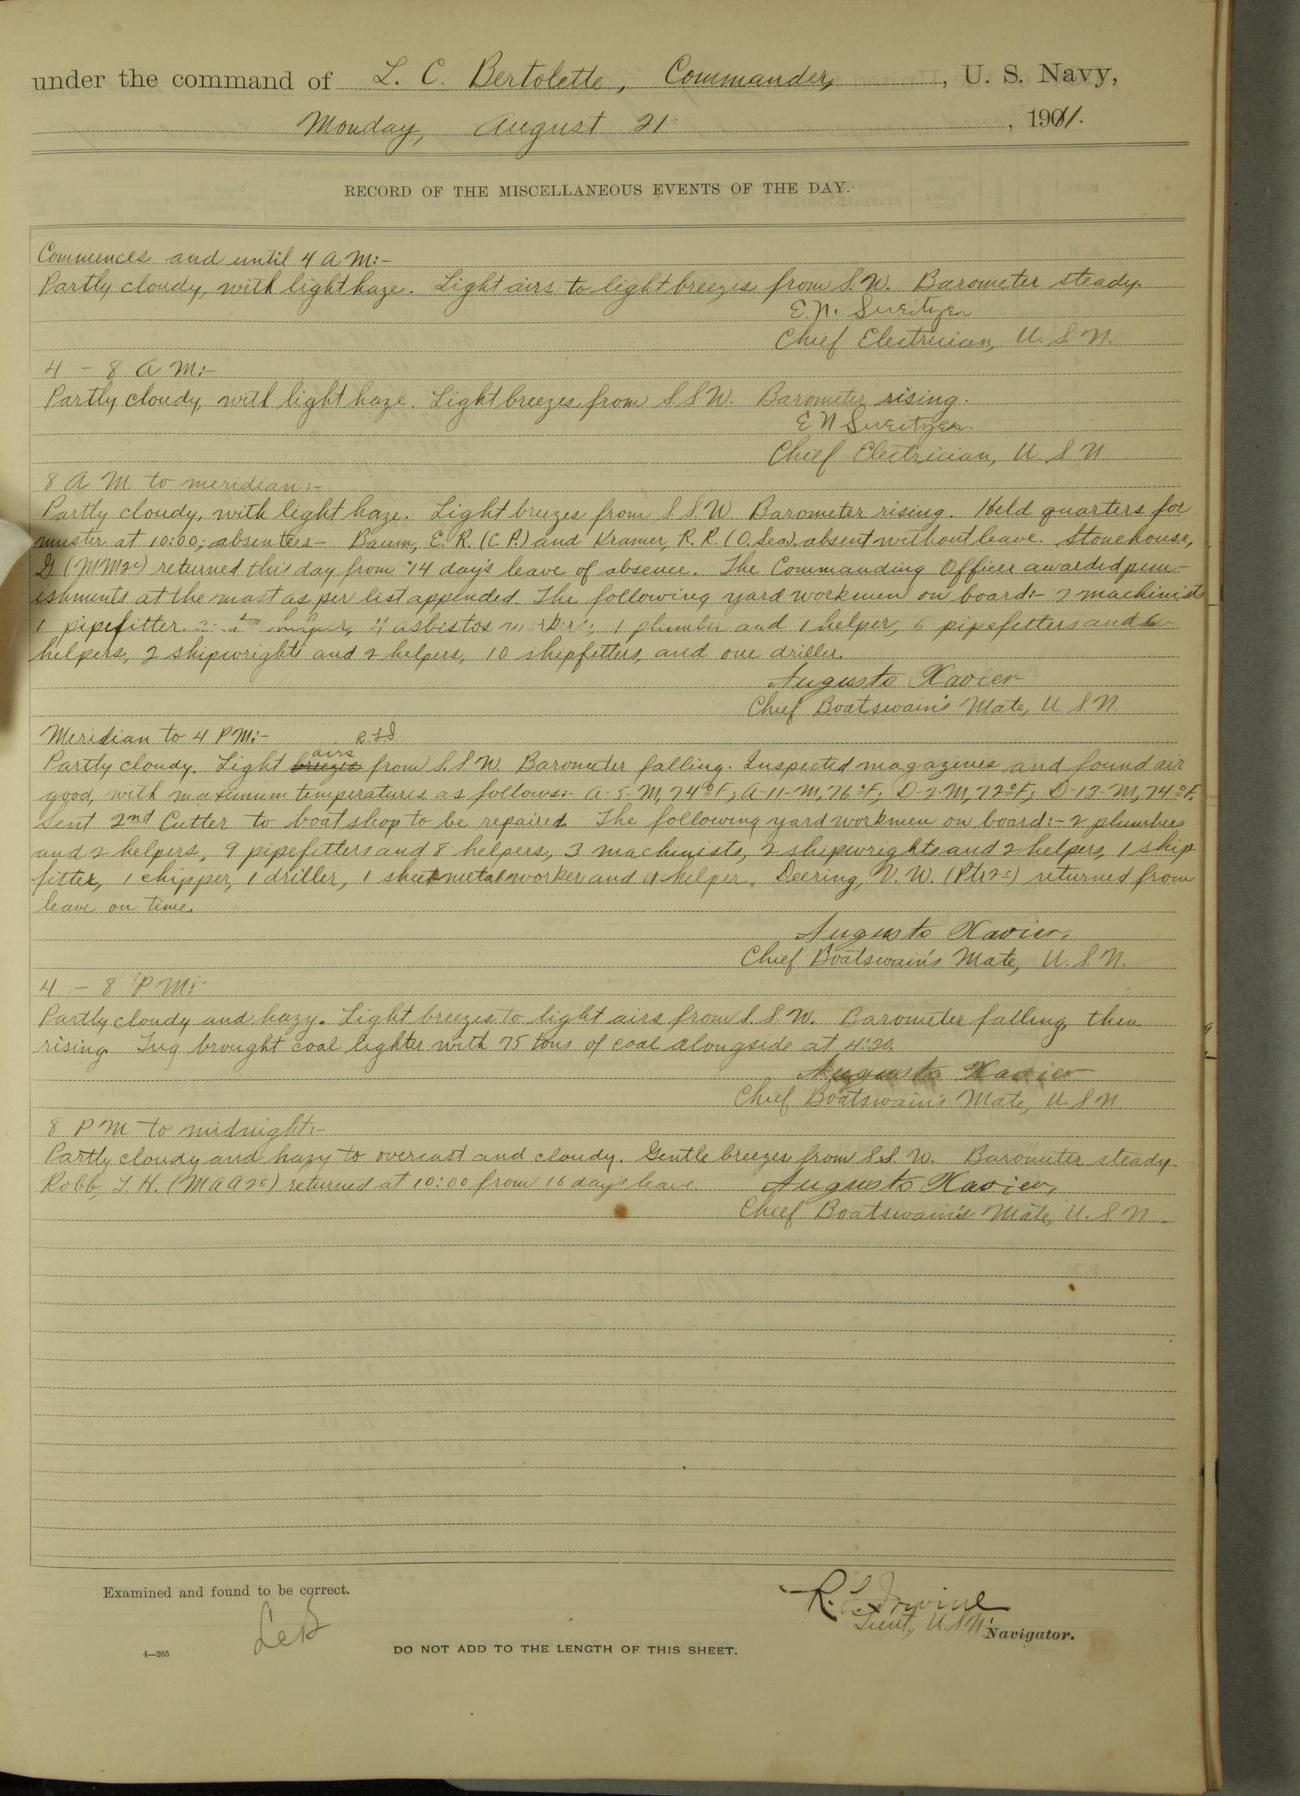 under the command of L. C. Bertolette, Commander, , U. S. Navy,
Monday, August 21 , 1911.
RECORD OF THE MISCELLANEOUS EVENTS OF THE DAY.
Commences and until 4 A M:-
Partly cloudy, with light haze. Light airs to light breezes from S.W. Barometer steady.
E. N. Sweitzer
Chief Electrician, U. S. N.
4 - 8 A M:-
Partly cloudy, with light haze. Light breezes from S.S.W. Barometer rising.
E N Sweitzer
Chief Electrician, U. S. N.
8 A M to meridian:-
Partly cloudy, with light haze. Light breezes from S.S.W. Barometer rising. Held quarters for
muster at 10:00; absentees- Baum, E. R. (C.P.) and Kramer, R. R. (O.Sea) absent without leave. Stonehouse,
G (MM2c) returned this day from 14 day's leave of absence. The Commanding Officer awarded pun-
ishments at the mast as per list appended. The following yard workmen on board:- 2 machinists
1 pipefitter asbistos 1 plumber and 1 helper, 6 pipefitters and 6
helpers, 2 shipwrights and 2 helpers, 10 shipfitters, and one driller.
Augusto Xavier
Chief Boatswain's Mate, U S N.
Meridian to 4 PM:-
Partly cloudy. Light breezes airs from S.S.W. Barometer falling. Inspected magazines and found air
good, with maximum temperatures as follows:- A-5-M, 74°F; A-11-M, 76°F; D-2-M, 72°F; D-13-M, 74°F.
Sent 2nd Cutter to boat shop to be repaired. The following yard workmen on board:- 2 plumbers
and 2 helpers, 9 pipefitters and 8 helpers, 3 machinists, 2 shipwrights and 2 helpers, 1 ship
fitter, 1 chipper, 1 driller, 1 sheet metal worker and 1 helper. Deering, V. W. (Ptr2c) returned from
leave on time.
Augusto Xavier,
Chief Boatswain's Mate, U. S. N.
4 - 8 P M:-
Partly cloudy and hazy. Light breezes to light airs from S.S.W. Barometer falling, then
rising. Tug brought coal lighter with 75 tons of coal alongside at 4:30.
Augusto Xavier
Chief Boatswain's Mate, U S N.
8 P M to midnight:-
Partly cloudy and hazy to overcast and cloudy. Gentle breezes from S.S.W. Barometer steady.
Robb, T. H. (MAA2c) returned at 10:00 from 16 days leave. Augusto Xavier,
Chief Boatswain's Mate, U. S. N.
Examined and found to be correct.
LCB
R. L. Irvine
Lieut, U.S.N.
Navigator.
4—265
DO NOT ADD TO THE LENGTH OF THIS SHEET.